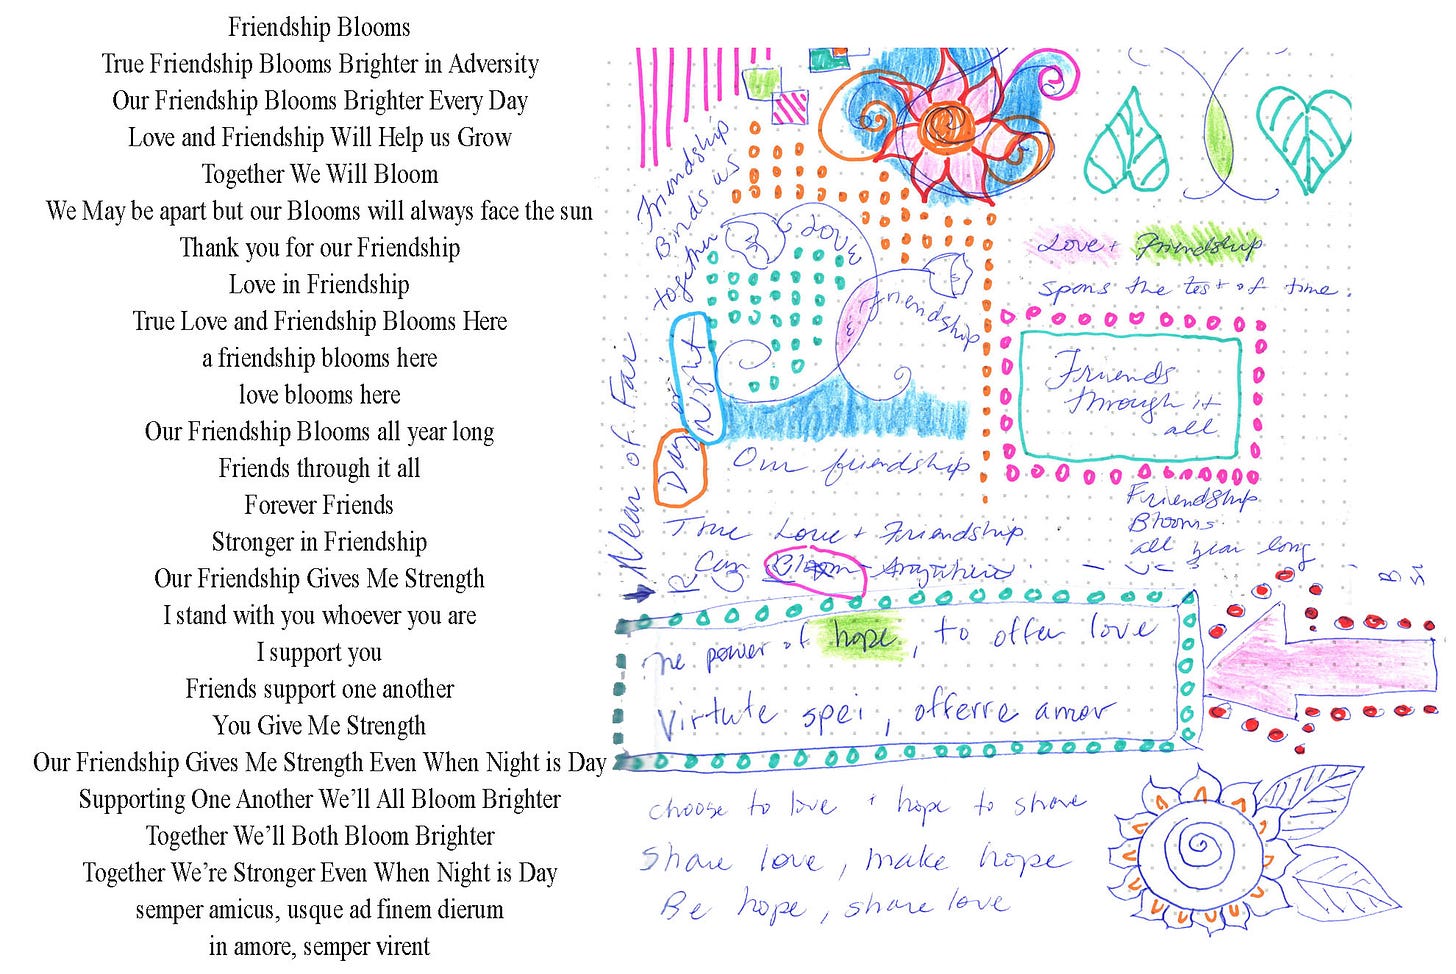 Friendship Blooms
True Friendship Blooms Brighter in Adversity
Our Friendship Blooms Brighter Every Day
Love and Friendship Will Help us Grow
Together We Will Bloom
We May be apart but our Blooms will always face the sun
Thank you for our Friendship
Love in Friendship
True Love and Friendship Blooms Here
a friendship blooms here
love blooms here
Our Friendship Blooms all year long
Friends through it all
Forever Friends
Stronger in Friendship
Our Friendship Gives Me Strength
I stand with you whoever you are
I support you
Friends support one another
You Give Me Strength
Our Friendship Gives Me Strength Even When Night is Day
Supporting One Another We'll All Bloom Brighter
Together We'll Both Bloom Brighter
Together We're Stronger Even When Night is Day
semper amicus, usque ad finem dierum
in amore, semper virent
Friendship
Binds us
together
Love
friendship
Near or Far
Day or Night
Our friendship
Love + Friendship
spans the test of time.
Friends
through it
all
Friendship
Blooms
all year long
True Love + Friendship
Can Bloom Anywhere
The power of hope, to offer love
Virtute spei, offerre amor
choose to love + hope to share
Share love, make hope
Be hope, share love